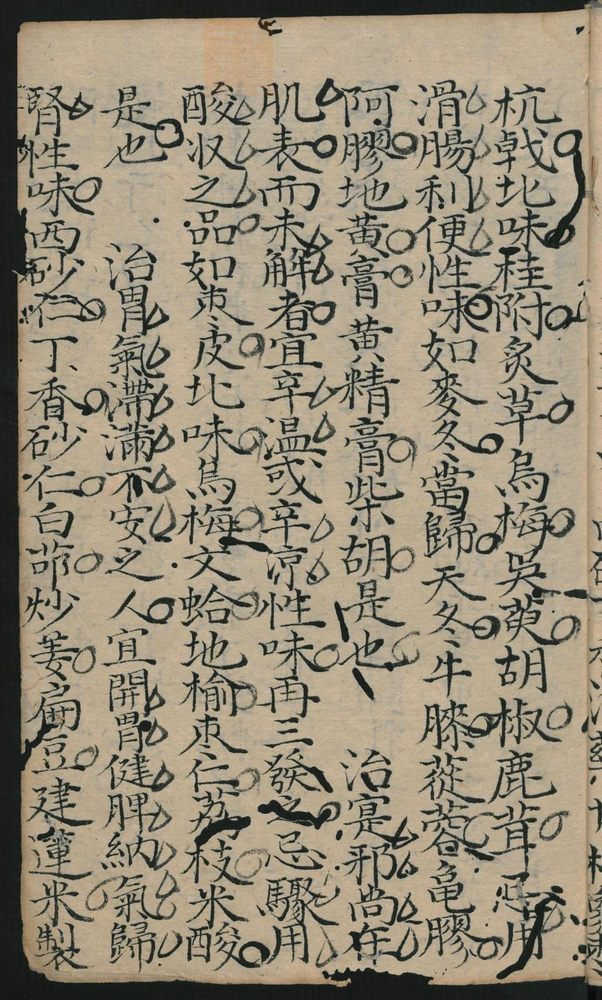 杭戟北味桂附炙草烏梅吳萸胡椒鹿茸忌用
滑腸利便性味如麥冬當歸天冬牛膝蓯蓉龜膠
阿膠地黃膏黃精膏柴胡是也　治寔邪尚在
肌表而未解者宜辛温或辛涼性味再三發之忌驟用
酸收之品如枣皮北味烏梅文蛤地榆枣仁荔枝米酸
是也　治胃氣滯滿不安之人宜開胃健脾納氣歸
腎性味西砂仁丁香砂仁白茆炒姜扁豆建蓮米製